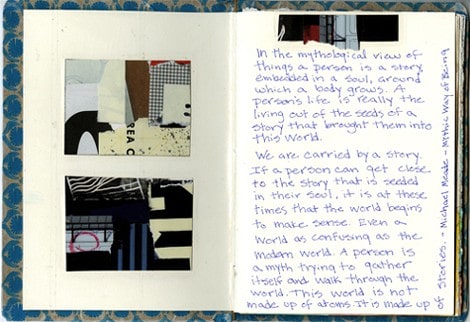 REA C
In the mythological view of
things a person is a story
embedded in a soul, around
which a body grows. A
person's life is really the
living out of the seeds of a
story that brought them into
this world.
We are carried by a story.
If a person can get close
to the story that is seeded
in their soul, it is at these
times that the world begins
to make sense. Even a
world as confusing as the
modern world. A person is
a myth trying to gather
itself and walk through the
world. This world is not
made up of atoms. It is made up of
Stories. - Michael Meade - Mythic Way of Being